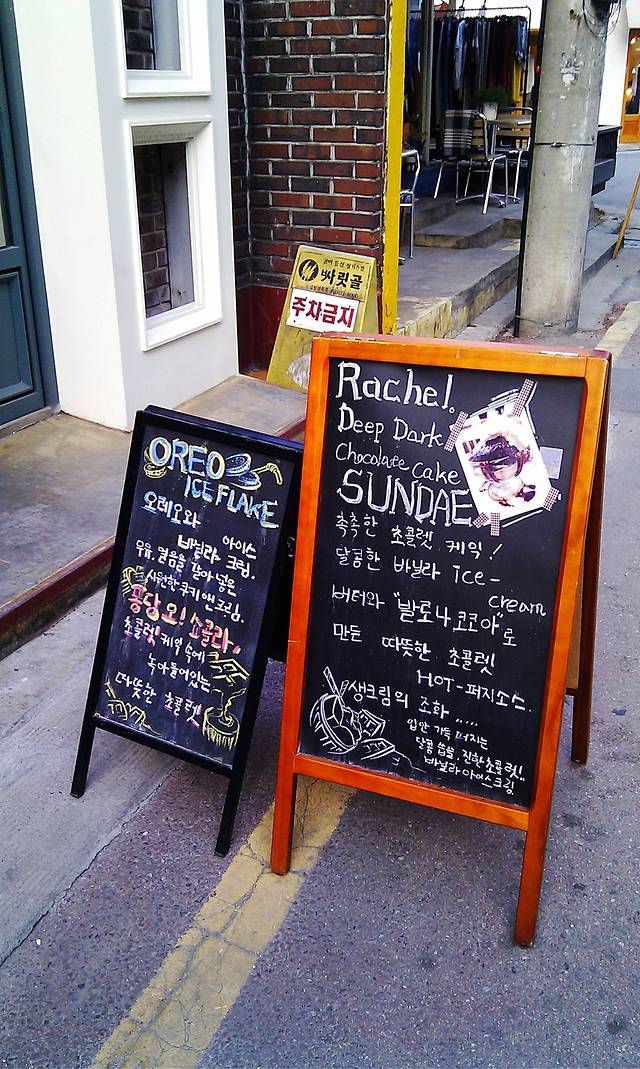 싸릿골
주차금지
OREO
ICE FLAKE
오레오와
바닐라 아이스
크림.
우유, 얼음을 갈아 넣은
시원한 쿠키 앤 크림.
퐁당 오! 쇼콜라.
초콜렛 케익 속에
녹아들어있는
따뜻한 초콜렛
Rachel.
Deep Dark
Chocolate Cake
SUNDAE
촉촉한 초콜렛 케익!
달콤한 바닐라 ice-
cream
버터와 "발로나 코코아"로
만든 따뜻한 초콜렛
HOT-퍼지소스.
생크림의 조화 ....
입안 가득 퍼지는
달콤 쌉쌀, 진한 초콜렛!
바닐라 아이스크림.